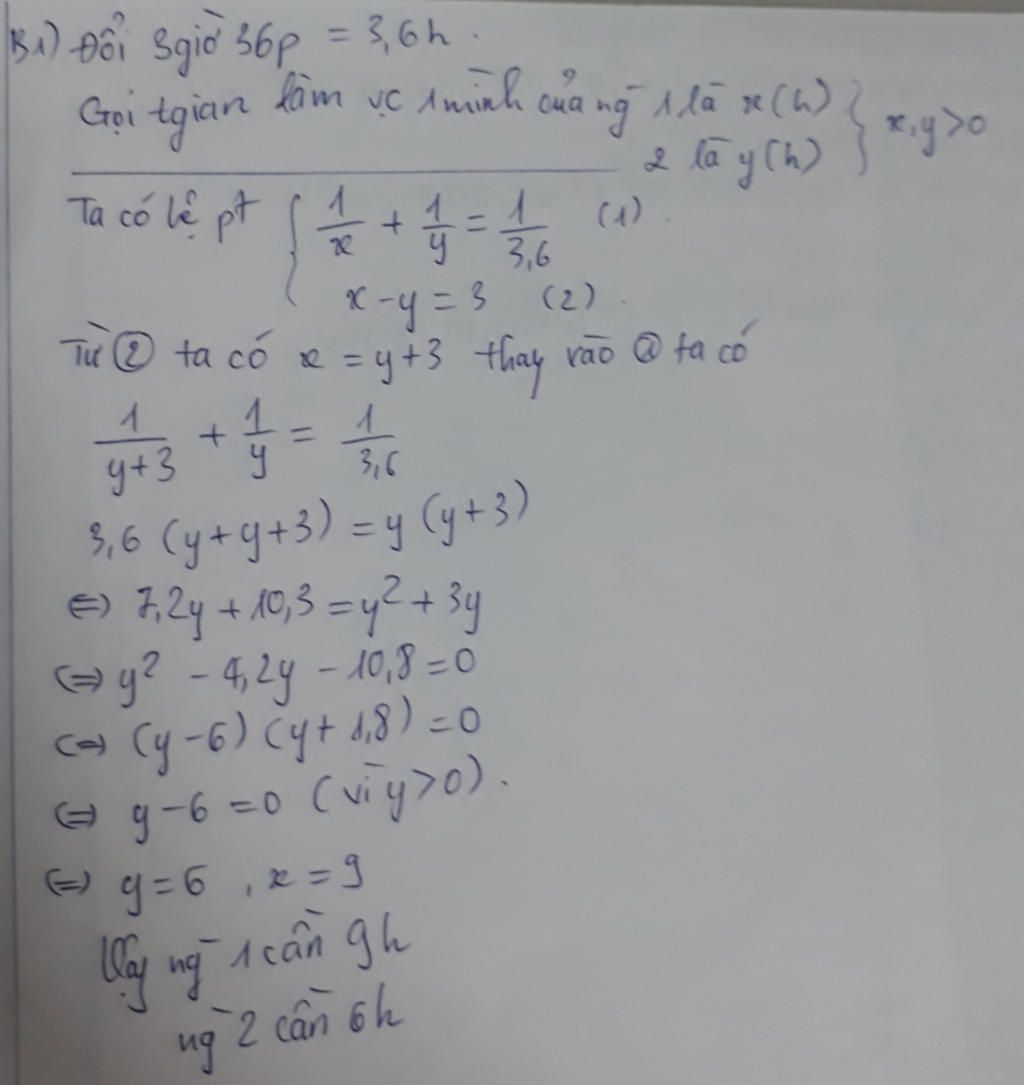 B1) Đổi 3giờ 36p = 3,6h.
Gọi tgian làm vc 1 mình của ng 1 là x(h) } x,y>0
2 là y(h)
Ta có hệ pt { 1/x + 1/y = 1/3,6 (1).
x - y = 3 (2).
Từ ② ta có x = y+3 thay vào ① ta có
1/(y+3) + 1/y = 1/3,6
3,6 (y+y+3) = y (y+3)
⇔ 7,2y + 10,3 = y² + 3y
⇔ y² - 4,2y - 10,8 = 0
⇔ (y-6) (y+1,8) = 0
⇔ y-6 = 0 (vì y>0).
⇔ y = 6, x = 9
Vậy ng 1 cần 9h
ng 2 cần 6h